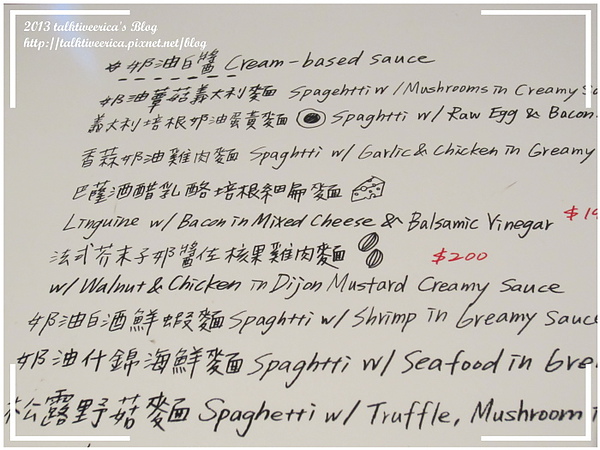 2013 talktiveerica's Blog
http://talktiveerica.pixnet.net/blog
# 奶油白醬 Cream-based sauce
奶油蘑菇義大利麵 Spagehtti w/ Mushrooms in Creamy
義大利培根奶油蛋黃麵 Spaghtti w/ Raw Egg & Bacon
香蒜奶油雞肉麵 Spaghtti w/ Garlic & Chicken in Greamy
巴薩酒醋乳酪培根細扁麵
Linguine w/ Bacon in Mixed Cheese & Balsamic Vinegar
法式芥末子奶醬佐核果雞肉麵 $200
w/ Walnut & Chicken in Dijon Mustard Creamy Sauce
奶油白酒鮮蝦麵 Spaghtti w/ Shrimp in Greamy Sauce
奶油什錦海鮮麵 Spaghtti w/ Seafood in
松露野菇麵 Spaghetti w/ Truffle, Mushroom